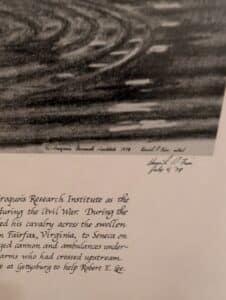 Iroquois Research Institute 1979
July 4, '79
roquois Research Institute as the
during the Civil War. During the
ed his cavalry across the swollen
n Fairfax, Virginia, to Seneca on
ged cannon and ambulances under-
arns who had crossed upstream.
e at Gettysburg to help Robert E. Lee.